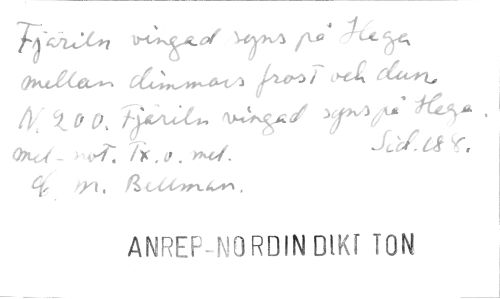 Fjäriln vingad syns på Haga
mellan dimmors frost och dun.
N. 200. Fjäriln vingad syns på Haga.
mel-not. Tx. o. mel. Sid. 188.
af C. M. Bellman.
ANREP-NORDIN DIKT TON